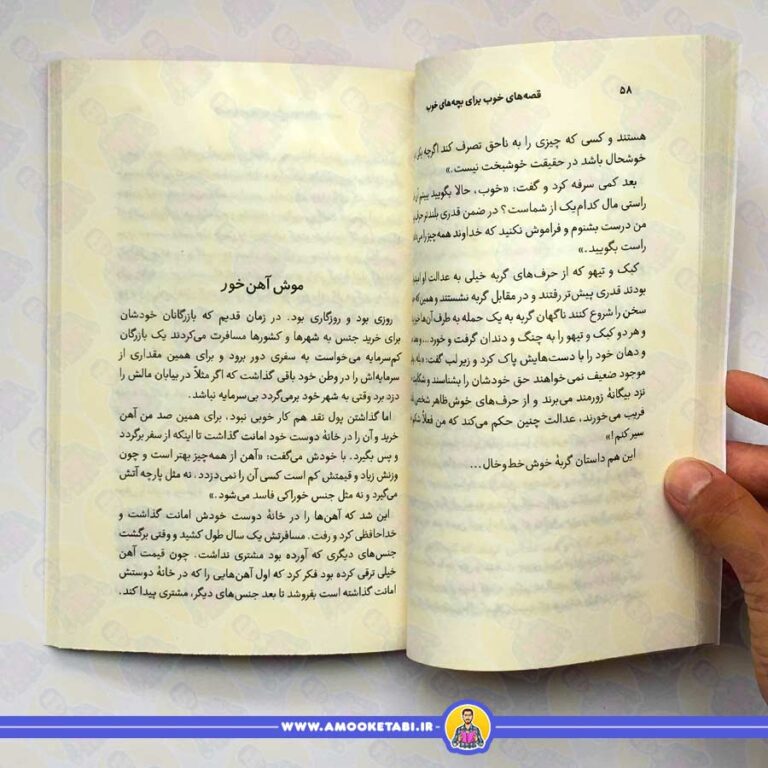 ۵۸
قصه‌های خوب برای بچه‌های خوب
هستند و کسی که چیزی را به ناحق تصرف کند اگرچه
خوشحال باشد در حقیقت خوشبخت نیست.»
بعد کمی سرفه کرد و گفت: «خوب، حالا بگویید ببینم
راستی مال کدام‌یک از شماست؟ در ضمن قدری بلندتر
من درست بشنوم و فراموش نکنید که خداوند همه‌چیز را
راست بگویید.»
کبک و تیهو که از حرف‌های گربه خیلی به عدالت او
بودند قدری پیش‌تر رفتند و در مقابل گربه نشستند و همین‌که
سخن را شروع کنند ناگهان گربه به یک حمله به طرف آن‌ها
و هر دو کبک و تیهو را به چنگ و دندان گرفت و خورد...
و دهان خود را با دست‌هایش پاک کرد و زیر لب گفت:
موجود ضعیف نمی‌خواهند حق خودشان را بشناسند و
نزد بیگانهٔ زورمند می‌برند و از حرف‌های خوش‌ظاهر
فریب می‌خورند، عدالت چنین حکم می‌کند که من فعلاً
سیر کنم!»
این هم داستان گربهٔ خوش خط‌و‌خال...
موش آهن‌خور
روزی بود و روزگاری بود. در زمان قدیم که بازرگانان خودشان
برای خرید جنس به شهرها و کشورها مسافرت می‌کردند یک بازرگان
کم‌سرمایه می‌خواست به سفری دور برود و برای همین مقداری از
سرمایه‌اش را در وطن خود باقی گذاشت که اگر مثلاً در بیابان مالش را
دزد برد وقتی به شهر خود برمی‌گردد بی‌سرمایه نباشد.
اما گذاشتن پول نقد هم کار خوبی نبود، برای همین صد من آهن
خرید و آن را در خانهٔ دوست خود امانت گذاشت تا اینکه از سفر برگردد
و پس بگیرد. با خودش می‌گفت: «آهن از همه‌چیز بهتر است و چون
وزنش زیاد و قیمتش کم است کسی آن را نمی‌دزدد. نه مثل پارچه آتش
می‌گیرد و نه مثل جنس خوراکی فاسد می‌شود.»
این شد که آهن‌ها را در خانهٔ دوست خودش امانت گذاشت و
خداحافظی کرد و رفت. مسافرتش یک سال طول کشید و وقتی برگشت
جنس‌های دیگری که آورده بود مشتری نداشت. چون قیمت آهن
خیلی ترقی کرده بود فکر کرد که اول آهن‌هایی را که در خانهٔ دوستش
امانت گذاشته است بفروشد تا بعد جنس‌های دیگر، مشتری پیدا کند.
WWW.AMOOKETABI.IR